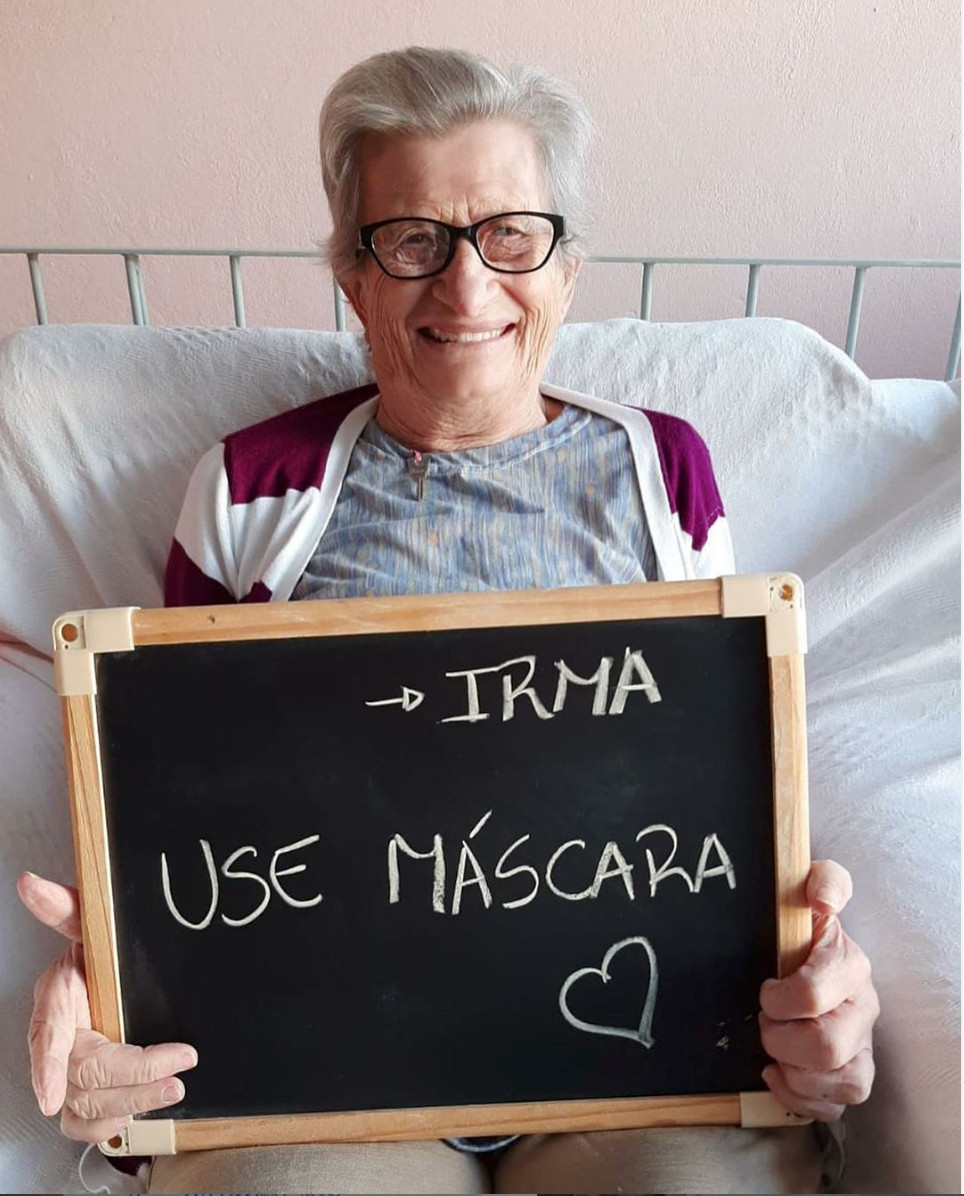 → IRMA
USE MÁSCARA